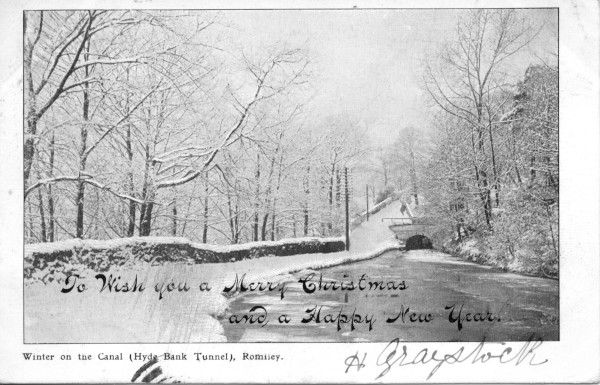 To Wish you a Merry Christmas
and a Happy New Year.
Winter on the Canal (Hyde Bank Tunnel), Romiley.
H Graystock